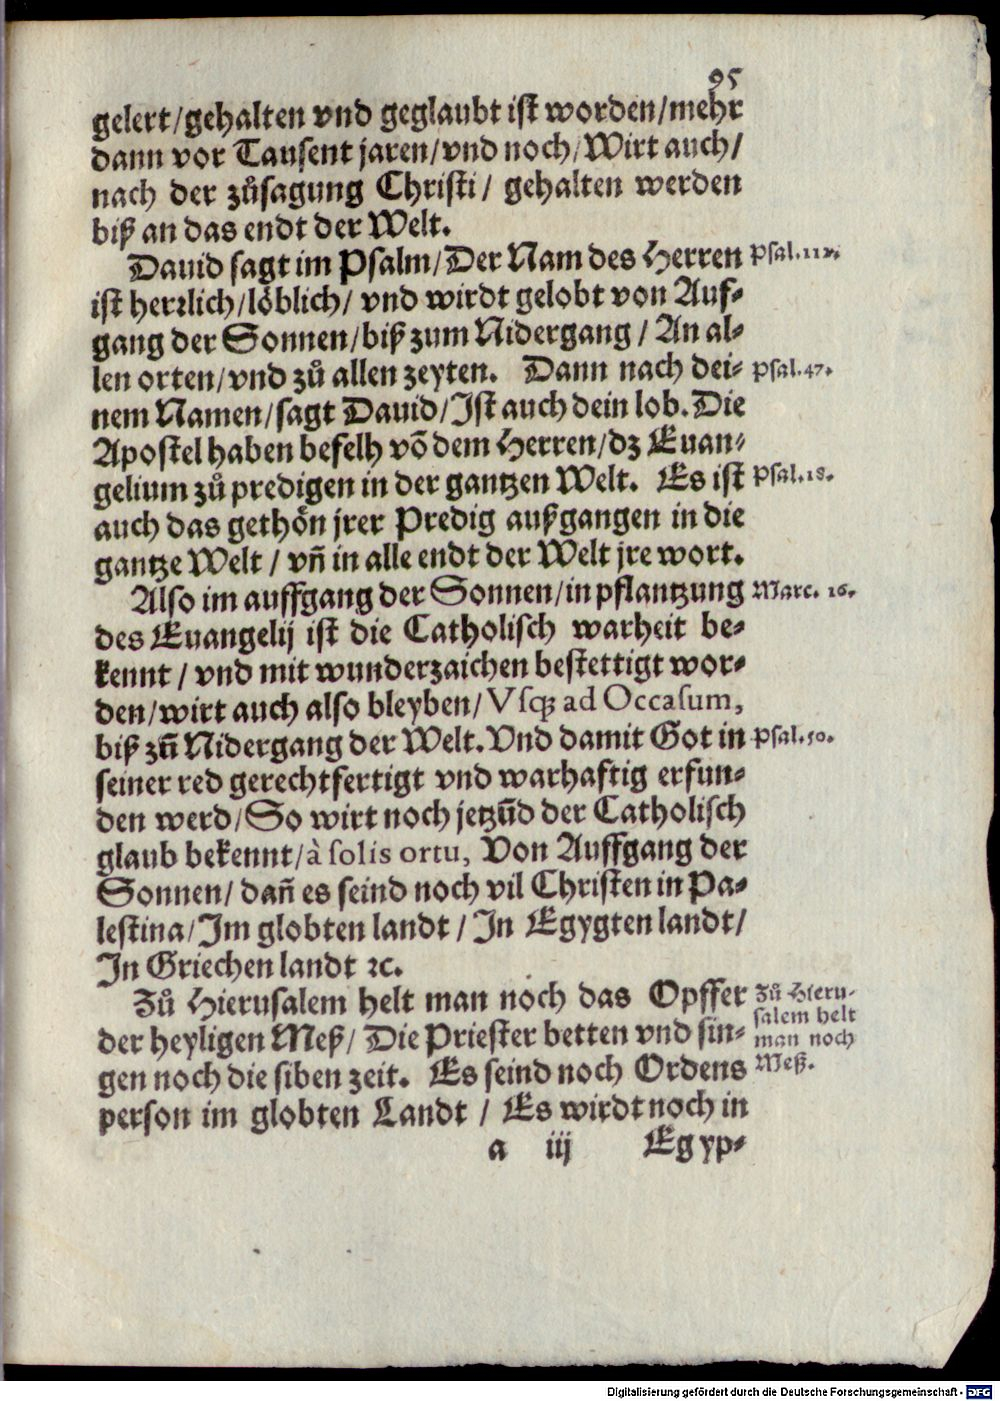 95
gelert/gehalten vnd geglaubt ist worden/mehr
dann vor Tausent jaren/vnd noch/Wirt auch/
nach der zůsagung Christi/ gehalten werden
biß an das endt der Welt.
Dauid sagt im Psalm/Der Nam des Herren
Psal.112.
ist herꝛlich/löblich/ vnd wirdt gelobt von Auf-
gang der Sonnen/biß zum Nidergang/ An al-
len orten/vnd zů allen zeyten. Dann nach dei-
Psal.47.
nem Namen/sagt Dauid/Ist auch dein lob. Die
Apostel haben befelh võ dem Herren/dz Euan-
gelium zů predigen in der gantzen Welt. Es ist
Psal.18.
auch das gethön jrer Predig außgangen in die
gantze Welt/ vñ in alle endt der Welt jre wort.
Also im auffgang der Sonnen/in pflantzung
Marc. 16.
des Euangelij ist die Catholisch warheit be-
kennt/ vnd mit wunderzaichen bestettigt wor-
den/wirt auch also bleyben/Vsqꝫ ad Occasum,
biß zũ Nidergang der Welt. Vnd damit Got in
Psal.50.
seiner red gerechtfertigt vnd warhaftig erfun-
den werd/So wirt noch jetzũd der Catholisch
glaub bekennt/à solis ortu, Von Auffgang der
Sonnen/ dañ es seind noch vil Christen in Pa-
lestina/Im globten landt/ In Egygten landt/
In Griechen landt ꝛc.
Zů Hierusalem helt man noch das Opffer
der heyligen Meß/ Die Priester betten vnd sin-
gen noch die siben zeit. Es seind noch Ordens
person im globten Landt/ Es wirdt noch in
Zů Hieru-
salem helt
man noch
Meß.
a iij Egyp-
Digitalisierung gefördert durch die Deutsche Forschungsgemeinschaft - DFG